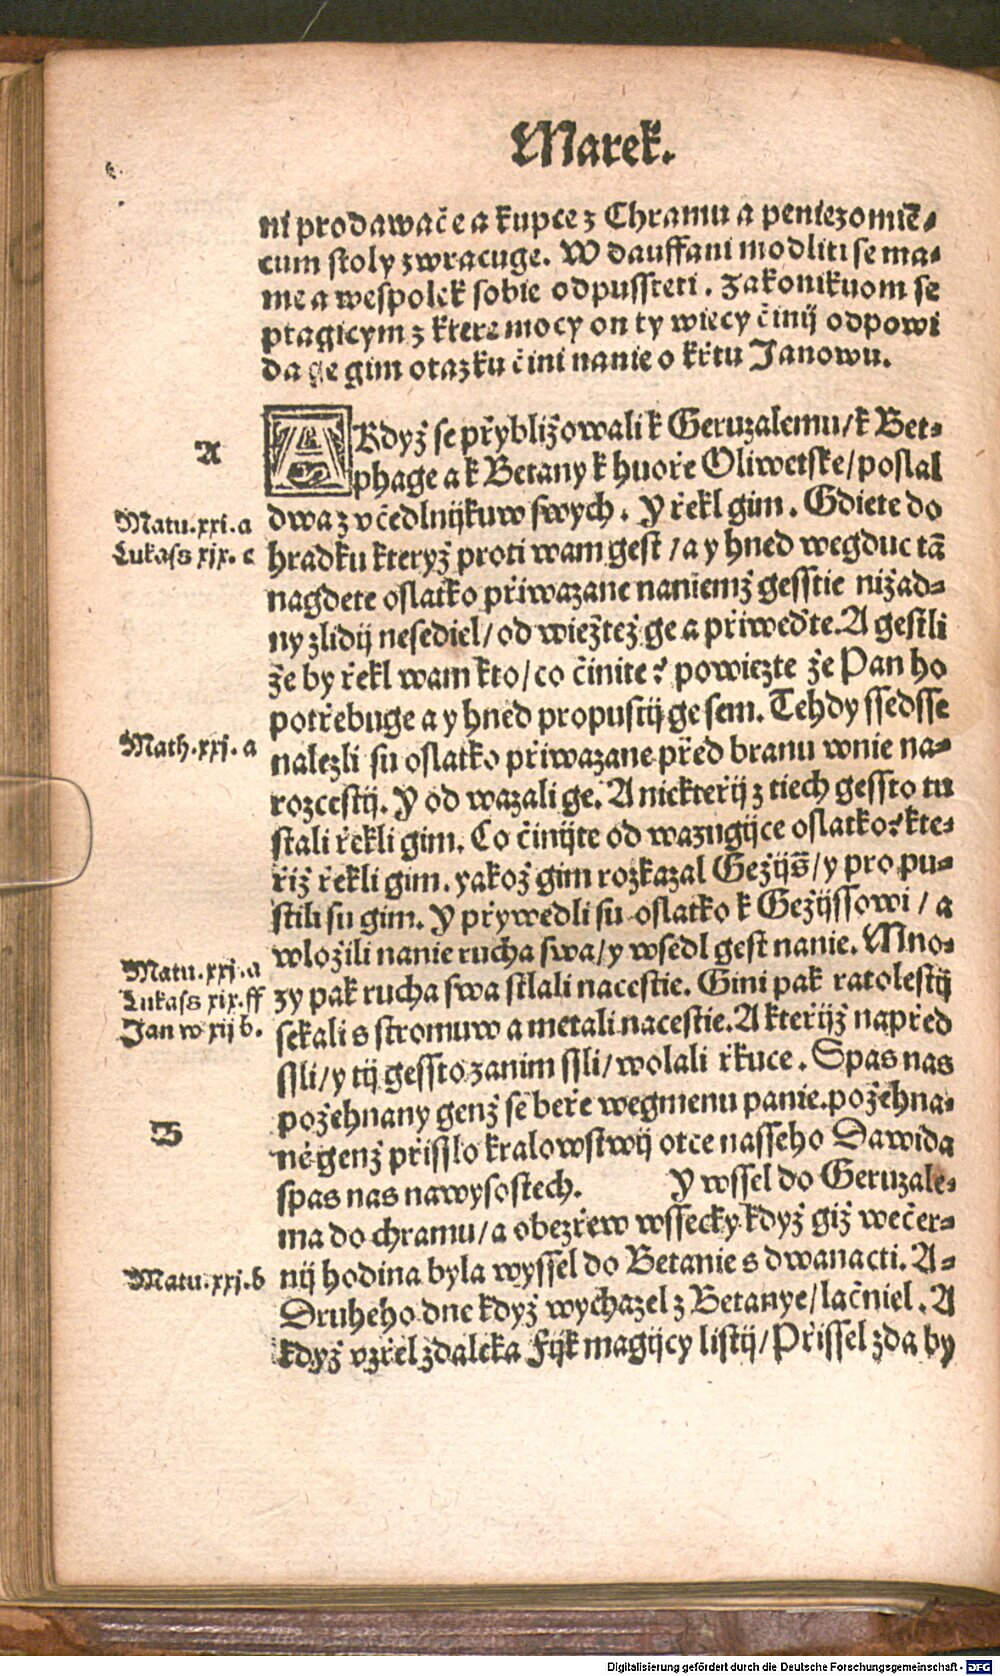 Marek.
ni prodawače a kupce z Chramu a peniezomiē-
cum stoly zwracuge. W dauffani modliti se ma-
me a wespolek sobie odpussteti. Zakonikuom se
ptagicym z ktere mocy on ty wiecy činij odpowi
da ge gim otazku čini nanie o křtu Janowu.
A
A Když se přybližowali k Geruzalemu/k Bet-
phage a k Betany k huoře Oliwetske/poslal
Matu.xxi.a
dwa z včedlnijkuw swych. Y řekl gim. Gdiete do
Lukass xix. c
hradku kteryž proti wam gest/a y hned wegduc tā
nagdete oslatko přiwazane naniemž gesstie nižad-
ny zlidij nesediel/od wiežtež ge a přiweďte. A gestli
že by řekl wam kto/co činite? powiezte že Pan ho
potřebuge a y hned propustij ge sem. Tehdy ssedsse
Math.xxj.a
nalezli su oslatko přiwazane před branu wnie na-
rozcestij. Y od wazali ge. A niekteřij z tiech gessto tu
stali řekli gim. Co činijte od wazugijce oslatko? kte-
řiž řekli gim. yakož gim rozkazal Gežijs̄/y pro pu-
stili su gim. Y přywedli su oslatko k Gežijssowi/a
wložili nanie rucha swa/y wsedl gest nanie. Mno-
Matu.xxj.a
Lukass xix.ff
zy pak rucha swa stlali nacestie. Gini pak ratolestij
Jan w xij b.
sekali s stromuw a metali nacestie. A kteřijž napřed
ssli/y tij gessto zanim ssli/wolali řkuce. Spas nas
požehnany genž se beře wegmenu panie. požehna-
B
né genž přisslo kralowstwij otce nasseho Dawida
spas nas nawysostech. Y wssel do Geruzale-
ma do chramu/a obezřew wssecky když giž wečer-
Matu.xxj.b
nij hodina byla wyssel do Betanie s dwanacti. A-
Druheho dne když wychazel z Betanye/lačniel. A
když vzřel zdaleka Fijk magijcy listij/Přissel zda by
Digitalisierung gefördert durch die Deutsche Forschungsgemeinschaft - DFG